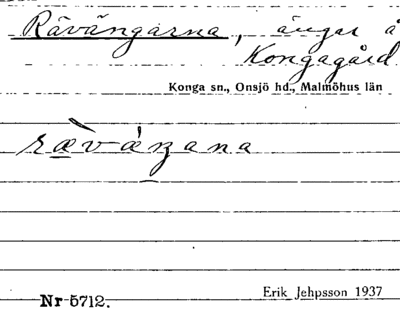 Rävängarna, ängar å
Kongagård
Konga sn., Onsjö hd., Malmöhus län
Nr 5712.
Erik Jehpsson 1937